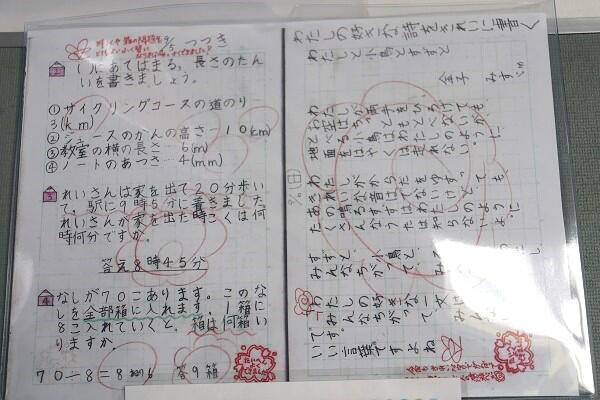 つづき
2
( )にあてはまる、長さのたん
いを書きましょう。
①サイクリングコースの道のり
3(km)
②ジュースのかんの高さ-10(km)
③教室の横の長さ-6(m)
④ノートのあつさ-4(mm)
3
れいさんは家を出て20分歩い
て、駅に9時5分に着きました
れいさんが家を出た時こくは何
時何分ですか。
答え8時45分
4
なしが70こあります。このな
しを全部箱に入れます。1箱に
8こ入れていくと、箱は何箱い
りますか
70÷8=8あまり6 答9箱
わたしの好きな詩をきれいに書く
わたしと小鳥とすずと
金子 みすゞ
わたしが両手をひろげても、
お空はちっともとべないが、
とべる小鳥はわたしのように、
地面をはやくは走れない。
わたしがからだをゆすっても、
きれいな音はでないけど、
あの鳴るすずはわたしのように
たくさんなうたは知らないよ。
すずと、小鳥と、それから
みんなちがって、みんな
わたしの好きな一文は
みんなちがって、みんな
いいです。
いい言葉ですよね